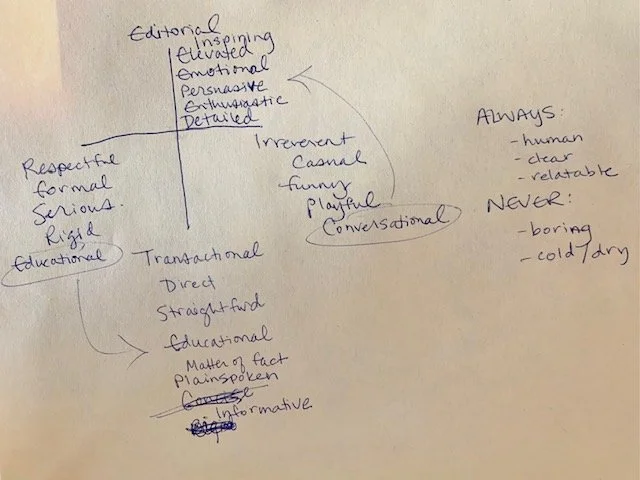 Editorial
Inspiring
Elevated
Emotional
Persuasive
Enthusiastic
Detailed
Respectful
formal
Serious.
Rigid
Educational
Irreverent
Casual
funny
Playful
Conversational
Transactional
Direct
Straightfwd
Educational
Matter of fact
Plainspoken
Concise
Informative
ALWAYS:
- human
- clear
- relatable
NEVER:
- boring
- cold/dry